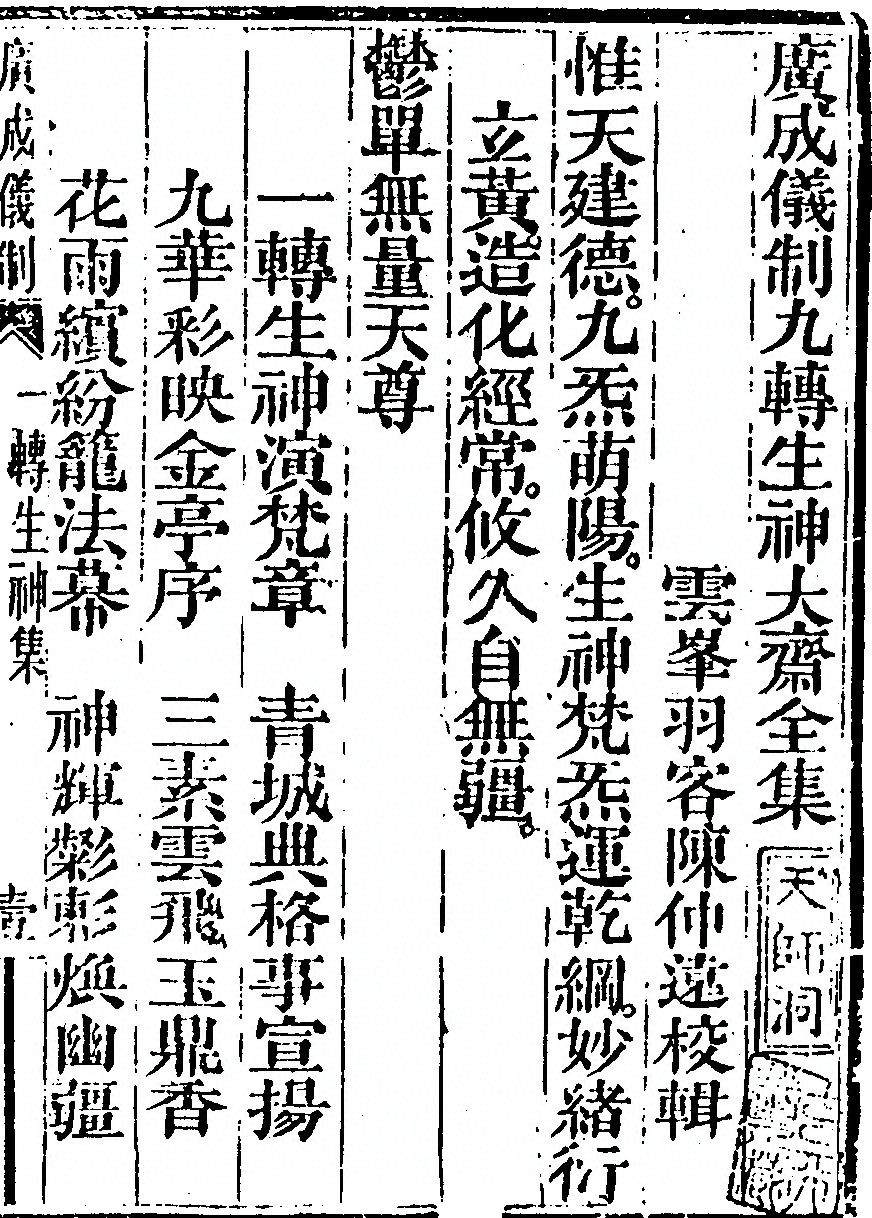 廣成儀制九轉生神大齋全集
天師洞
雲峯羽客陳仲遠校輯
惟天建德。九炁萌陽。生神梵炁運乾綱。妙緒衍
立黃造化經常。攸久自無疆。
鬱單無量天尊
一轉生神演梵章　青城典格事宣揚
九華彩映金亭序　三素雲飛玉鼎香
花雨繽紛籠法幕　神輝彩煥幽疆
廣成儀制
一轉生神集
壹